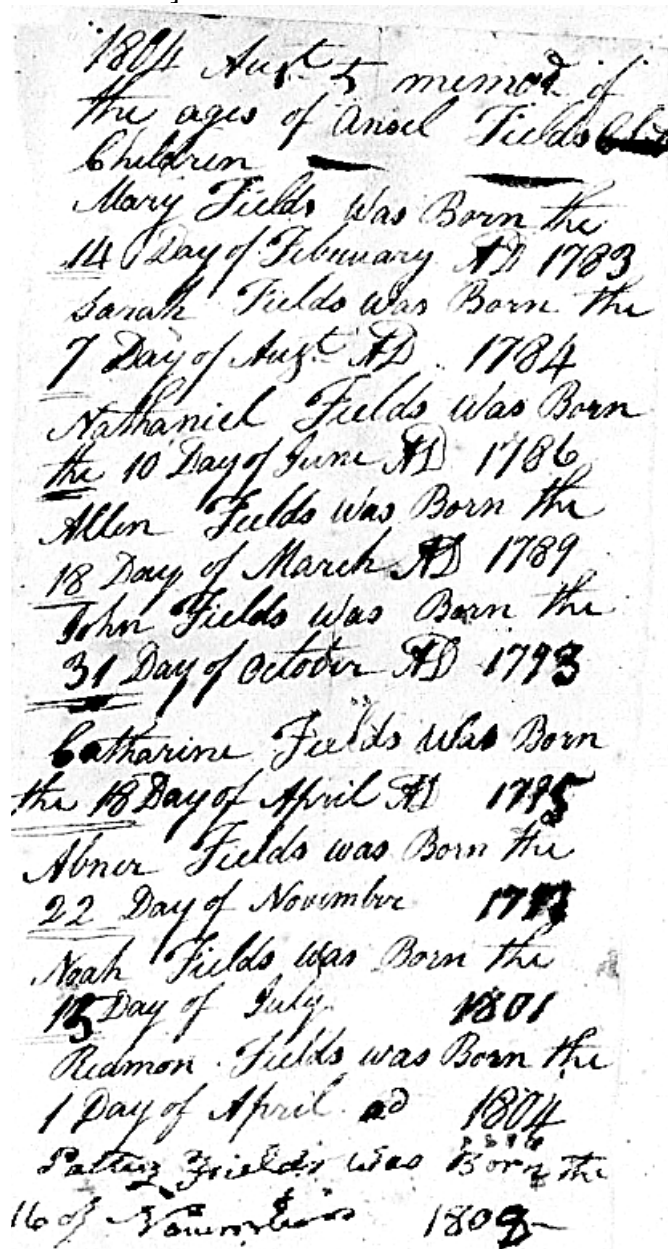 1804 Augt 5 memod of
the ages of Ansel Fields
Children
Mary Fields Was Born the
14 Day of February AD 1783
Sarah Fields was Born the
7 Day of Augt AD 1784
Nathaniel Fields Was Born
the 10 Day of June AD 1786
Allen Fields Was Born the
18 Day of March AD 1789
John Fields Was Born the
31 Day of October AD 1793
Catharine Fields Was Born
the 18 Day of April AD 1795
Abner Fields was Born the
22 Day of November
Noah Fields Was Born the
15 Day of July 1801
Redmon Fields was Born the
1 Day of April ad 1804
Fields was Born the
16 of